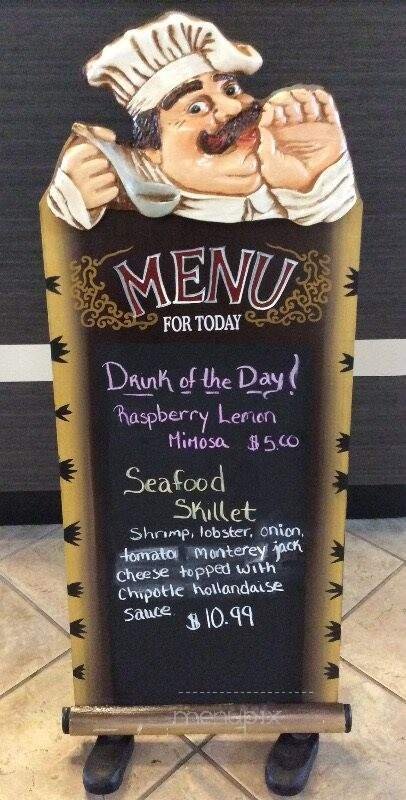 MENU
FOR TODAY
Drink of the Day!
Raspberry Lemon
Mimosa $5.00
Seafood
Skillet
Shrimp, lobster, onion,
tomato Monterey jack
cheese topped with
Chipotle hollandaise
sauce $10.99
menupix